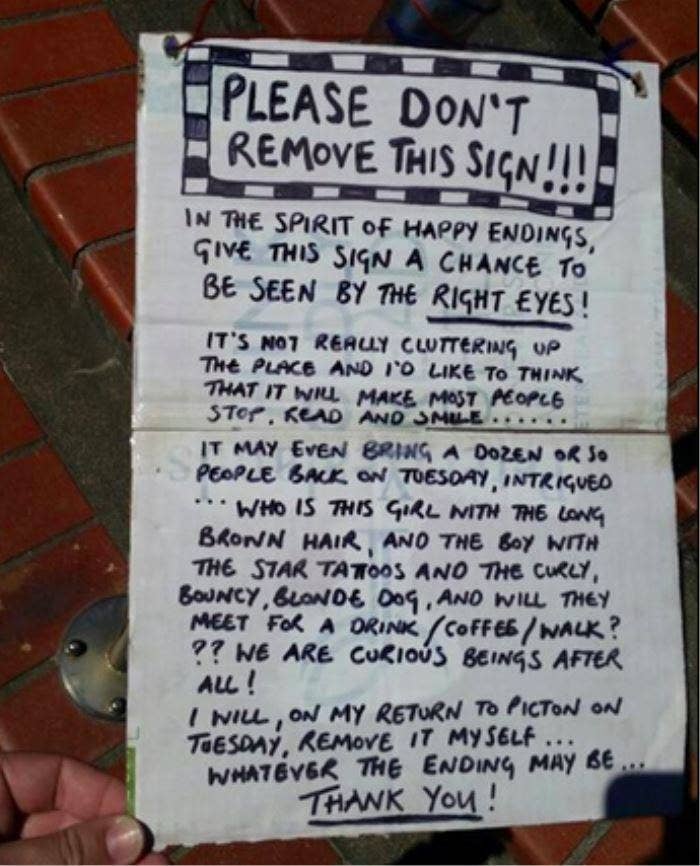 PLEASE DON'T
REMOVE THIS SIGN!!!
IN THE SPIRIT OF HAPPY ENDINGS,
GIVE THIS SIGN A CHANCE TO
BE SEEN BY THE RIGHT EYES!
IT'S NOT REALLY CLUTTERING UP
THE PLACE AND I'D LIKE TO THINK
THAT IT WILL MAKE MOST PEOPLE
STOP, READ AND SMILE......
IT MAY EVEN BRING A DOZEN OR SO
PEOPLE BACK ON TUESDAY, INTRIGUED
... WHO IS THIS GIRL WITH THE LONG
BROWN HAIR, AND THE BOY WITH
THE STAR TATTOOS AND THE CURLY,
BOUNCY, BLONDE DOG, AND WILL THEY
MEET FOR A DRINK/COFFEE/WALK?
?? WE ARE CURIOUS BEINGS AFTER
ALL!
I WILL, ON MY RETURN TO PICTON ON
TUESDAY, REMOVE IT MYSELF...
WHATEVER THE ENDING MAY BE...
THANK YOU!